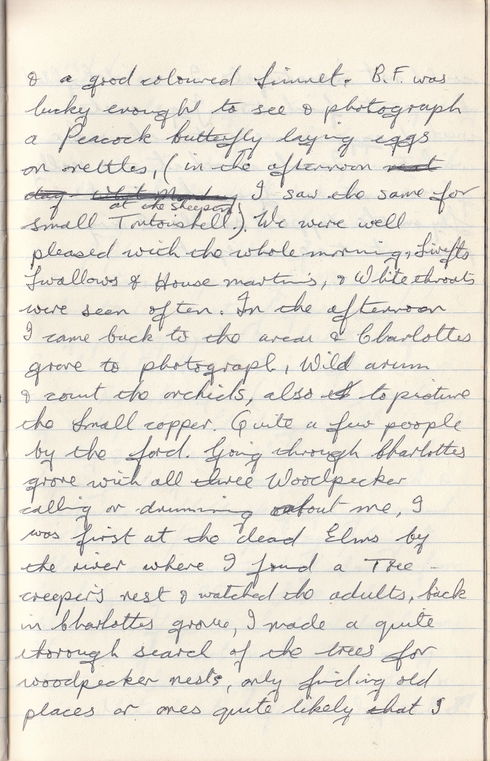 & a good coloured Linnet. B.F. was
lucky enought to see & photograph
a Peacock butterfly laying eggs
on nettles, (in the afternoon next
day Whit Monday I saw the same for
at the sheepdip
small Tortoishell.). We were well
pleased with the whole morning, Swifts
Swallows & House martin's, & Whitethroats
were seen often. In the afternoon
I came back to the area & Charlottes
grove to photograph, Wild arum
& count the orchids, also to picture
the Small copper. Quite a few people
by the ford. Going through Charlottes
grove with all three Woodpecker
calling or drumming about me, I
was first at the dead Elms by
the river where I found a Tree-
creeper's nest & watched the adults, back
in Charlottes grove, I made a quite
thorough search of the trees for
woodpecker nests, only finding old
places or ones quite likely that I